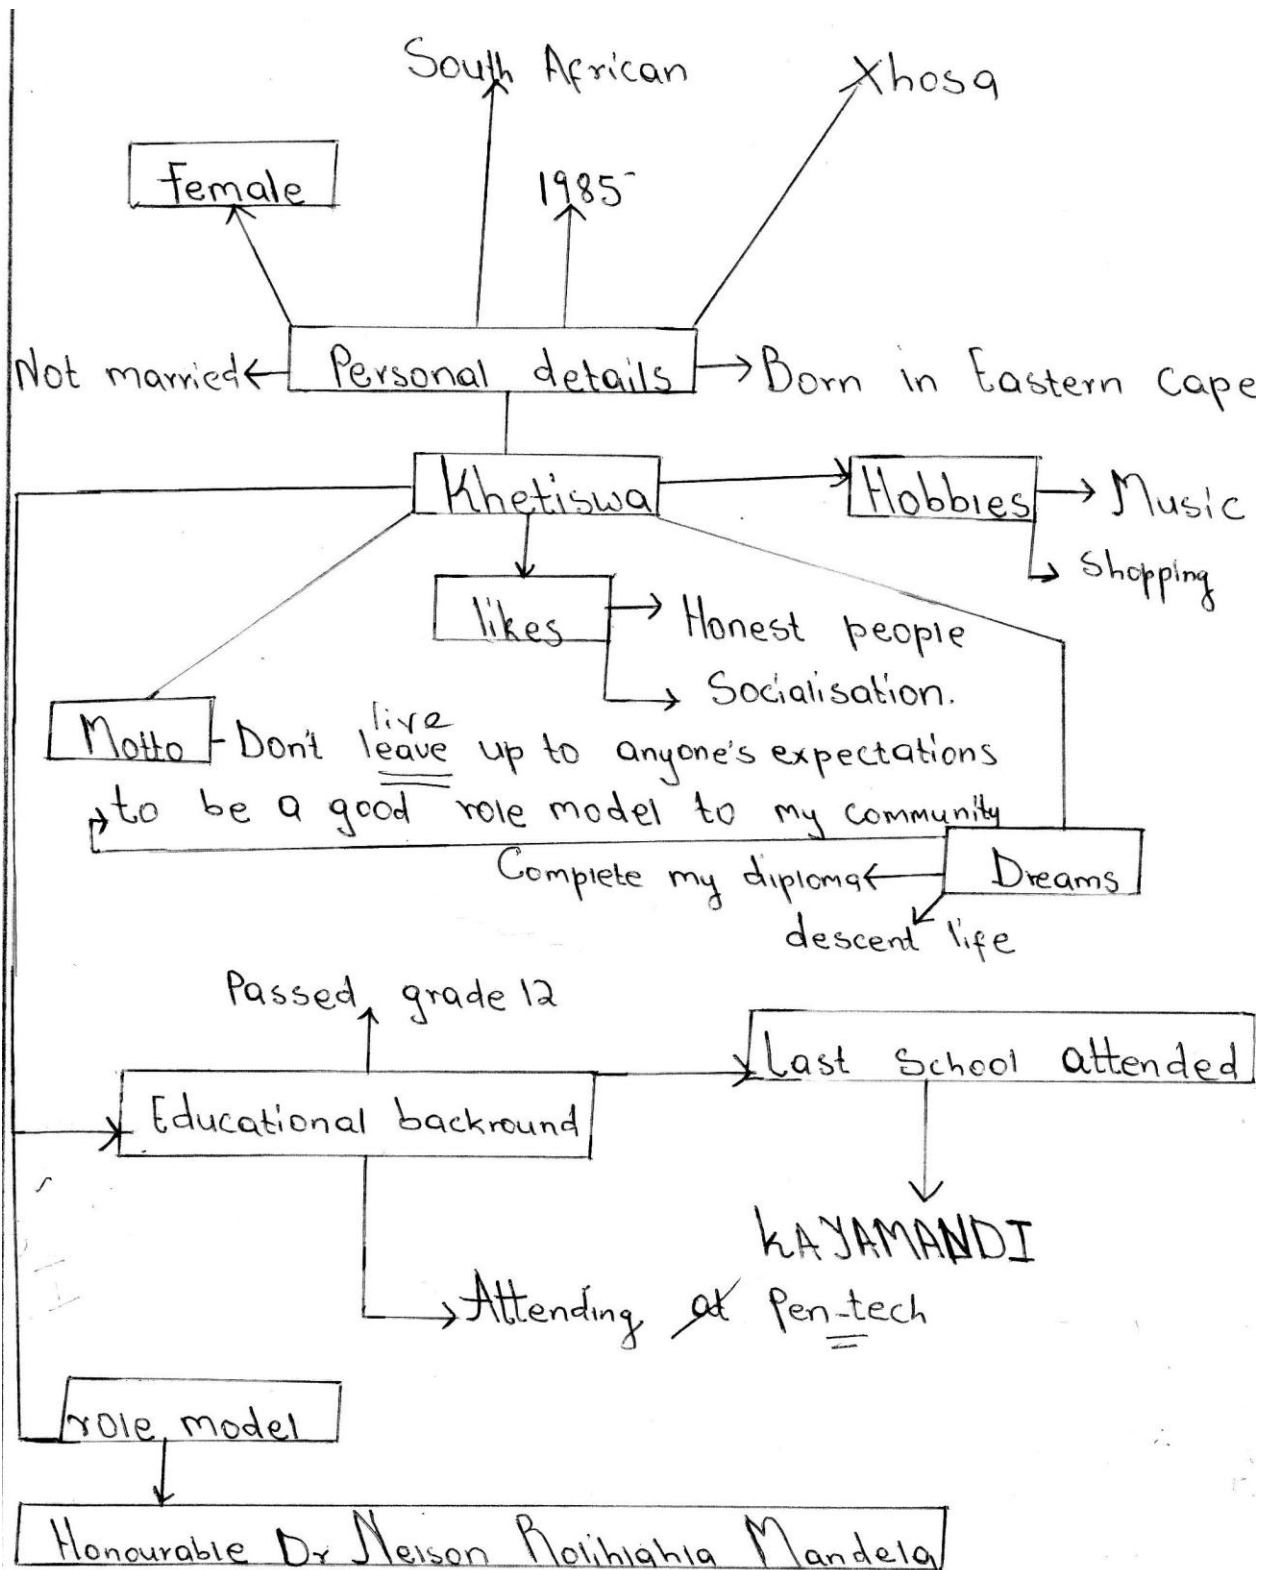 South African
Xhosa
Female
1985
Not married
Personal details
Born in Eastern Cape
Khetiswa
Hobbies
Music
Shopping
likes
Honest people
Socialisation.
live
Motto - Don't leave up to anyone's expectations
to be a good role model to my community
Complete my diploma
Dreams
descent life
Passed grade 12
Last School attended
Educational backround
KAYAMANDI
Attending at Pen-tech
role model
Honourable Dr Nelson Rolihlahla Mandela